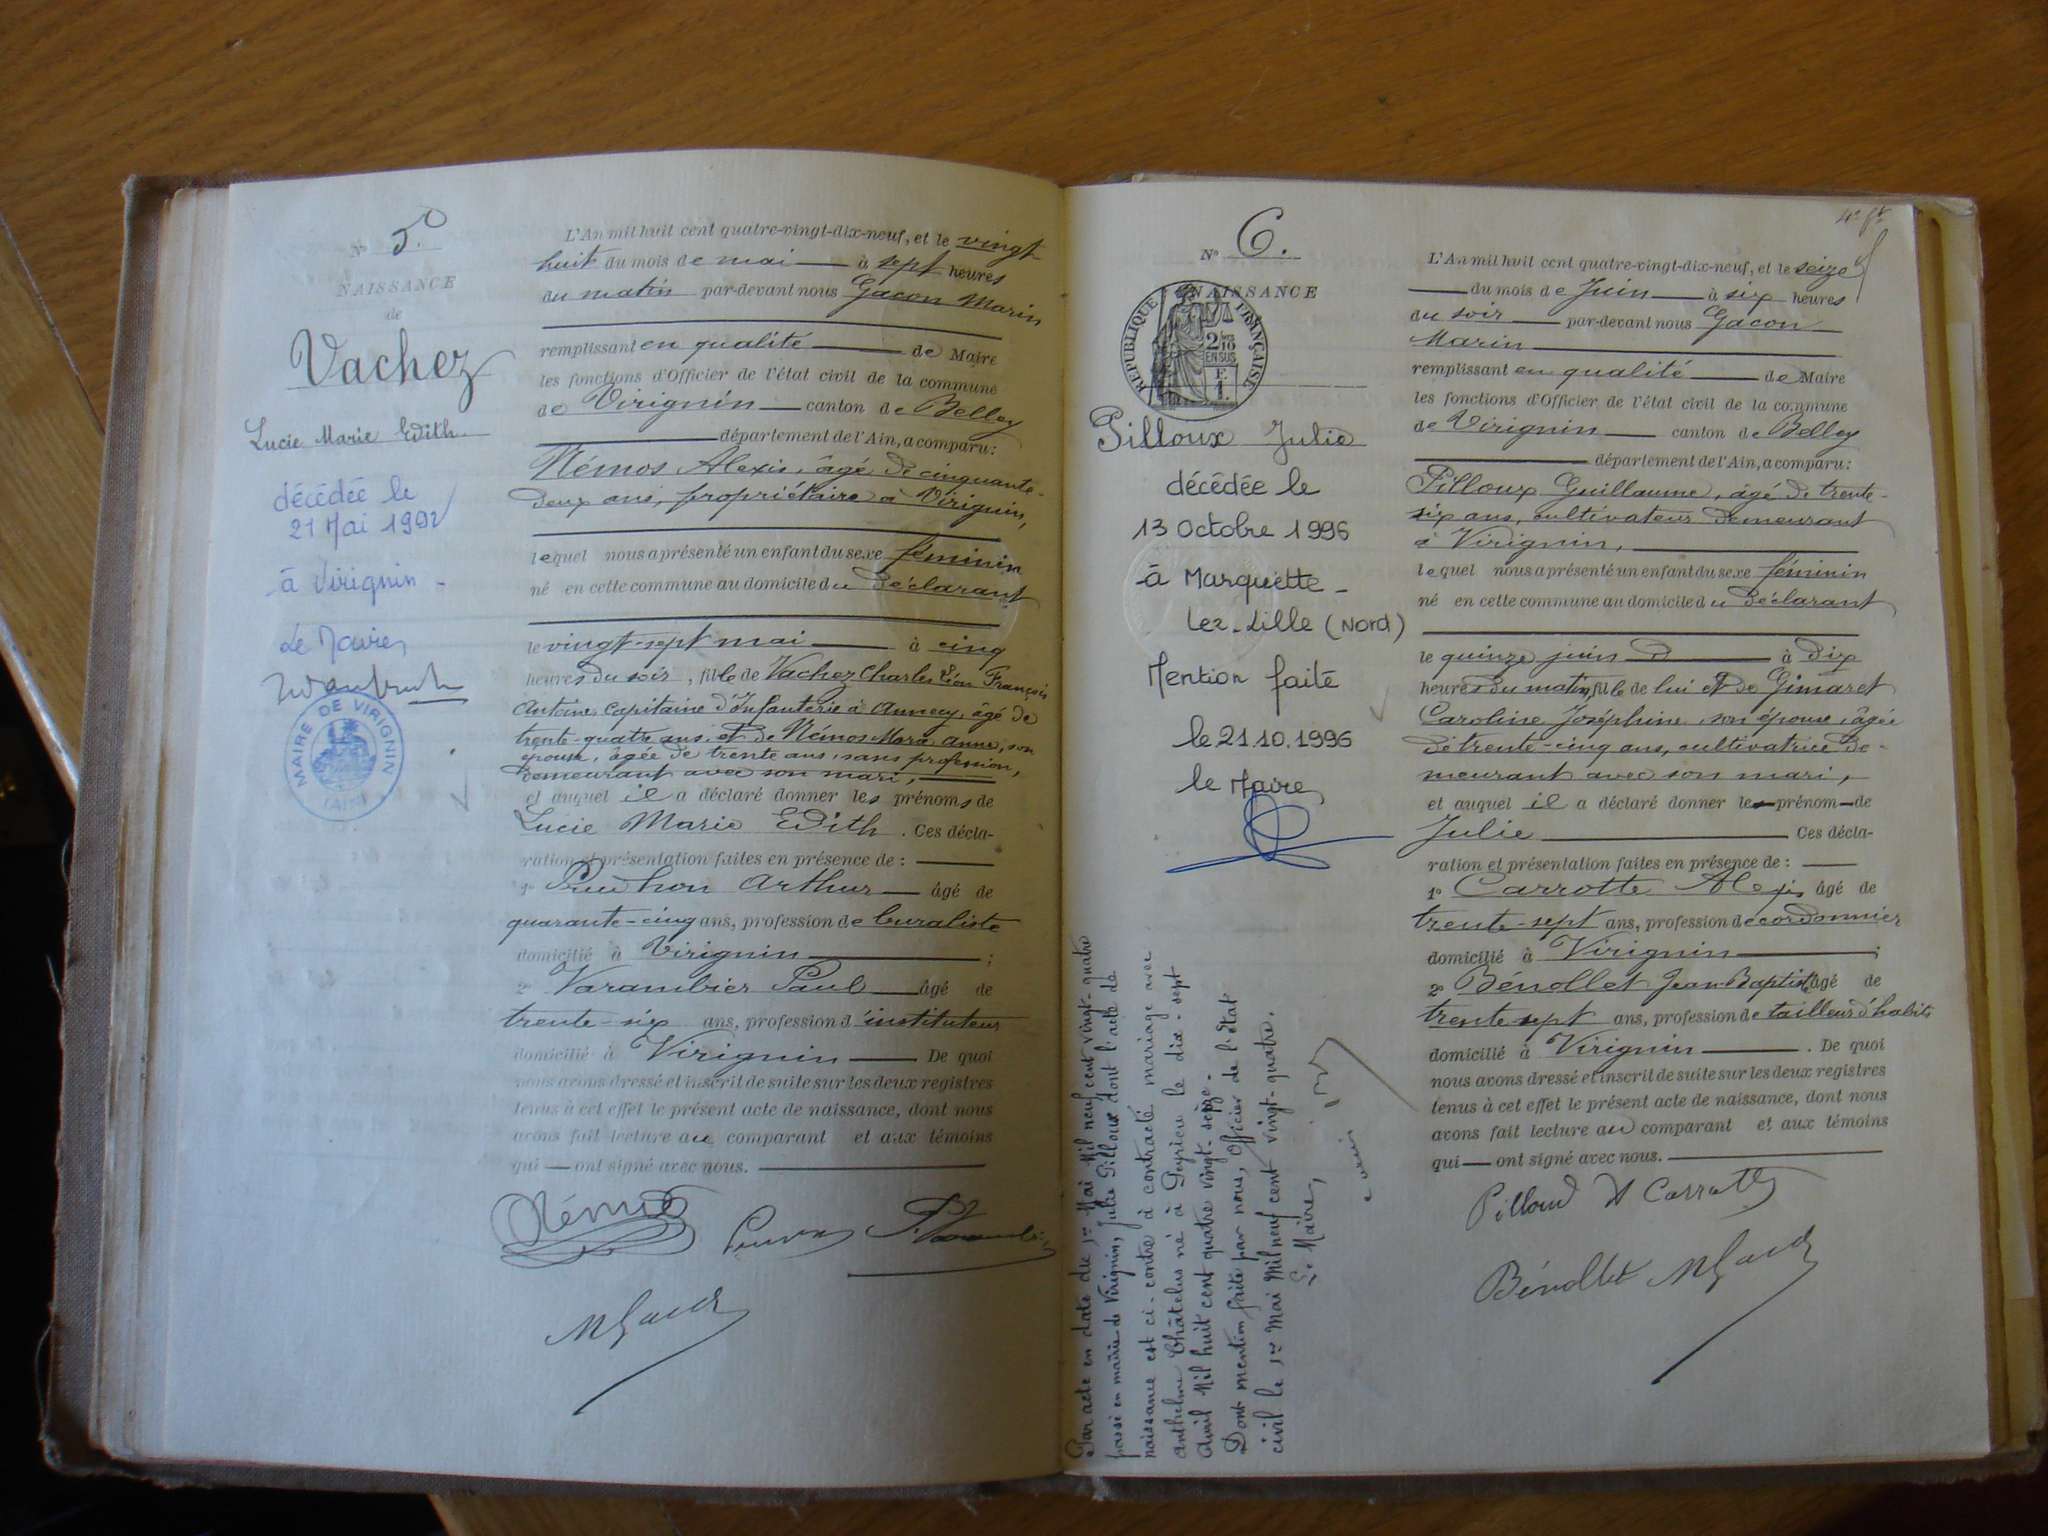 Nº 5.
NAISSANCE
de
Vachez
Lucie Marie Edith
décédée le
21 Mai 1992
à Virignin
Le Maire,
MAIRIE DE VIRIGNIN
(AIN)
L'An mil huit cent quatre-vingt-dix-neuf, et le vingt
huit du mois de mai à sept heures
du matin par-devant nous Gacon Marin
remplissant en qualité de Maire
les fonctions d'Officier de l'état civil de la commune
de Virignin canton de Belley
département de l'Ain, a comparu:
Némos Alexis, âgé de cinquante-
deux ans, propriétaire à Virignin,
lequel nous a présenté un enfant du sexe féminin
né en cette commune au domicile du déclarant
le vingt-sept mai à cinq
heures du soir, fille de Vachez Charles Léon François
Antoine, capitaine d'Infanterie à Annecy, âgé de
trente-quatre ans et de Némos Marie Anne, son
épouse, âgée de trente ans, sans profession,
demeurant avec son mari,
et auquel il a déclaré donner les prénoms de
Lucie Marie Edith. Ces décla-
ration et présentation faites en présence de :
1º Prudhon Arthur âgé de
quarante-cinq ans, profession de buraliste
domicilié à Virignin ;
2º Varambier Paul âgé de
trente-six ans, profession d'instituteur
domicilié à Virignin De quoi
nous avons dressé et inscrit de suite sur les deux registres
tenus à cet effet le présent acte de naissance, dont nous
avons fait lecture au comparant et aux témoins
qui ont signé avec nous.
Némos
MGacon
Nº 6.
NAISSANCE
REPUBLIQUE FRANÇAISE
2/10
EN SUS
Pilloux Julie
décédée le
13 Octobre 1996
à Marquette-
Lez-Lille (Nord)
Mention faite
le 21.10.1996
le Maire,
Par acte en date du 1er Mai Mil neuf cent vingt-quatre
passé en mairie de Virignin, Julie Pilloux dont l'acte de
naissance est ci-contre à contracté mariage avec
Anthelme Châtelus né à Peyrieu le dix-sept
Avril Mil huit cent quatre vingt-seize.
Dont mention faite par nous, Officier de l'état
civil le 1er Mai Mil neuf cent vingt-quatre.
Le Maire,
L'An mil huit cent quatre-vingt-dix-neuf, et le seize
du mois de Juin à six heures
du soir par-devant nous Gacon
Marin
remplissant en qualité de Maire
les fonctions d'Officier de l'état civil de la commune
de Virignin canton de Belley
département de l'Ain, a comparu:
Pilloux Guillaume, âgé de trente-
six ans, cultivateur demeurant
à Virignin,
lequel nous a présenté un enfant du sexe féminin
né en cette commune au domicile du déclarant
le quinze juin à dix
heures du matin, fille de lui et de Gimaret
Caroline Joséphine, son épouse, âgée
de trente-cinq ans, cultivatrice de-
meurant avec son mari,
et auquel il a déclaré donner le prénom de
Julie Ces décla-
ration et présentation faites en présence de :
1º Carrotte Alexis âgé de
trente-sept ans, profession de cordonnier
domicilié à Virignin ;
2º Bénollet Jean-Baptiste âgé de
trente-sept ans, profession de tailleur d'habits
domicilié à Virignin. De quoi
nous avons dressé et inscrit de suite sur les deux registres
tenus à cet effet le présent acte de naissance, dont nous
avons fait lecture au comparant et aux témoins
qui ont signé avec nous.
Pilloud A Carrotte
Bénollet MGacon